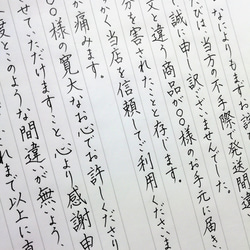 なによりもま
は、当方の不手際で発送間違
誠に申し訳ございませんでした。
文と違う商品が〇〇様のお手元に届き、
分を害されたことと存じます。
かく当店を信頼してご利用くださ
が痛みます。
〇〇様の寛大なお心でお許しくださり
せていただけますこと、心より感謝申
度とこのような間違いが無いよう、
れまで以上に